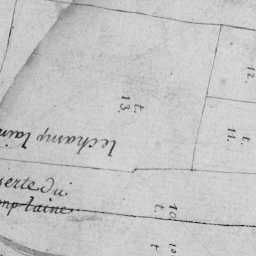 12.
t.
13.
t.
11.
lechamp lain
serte Du
mp laine
10.
t.
10
t